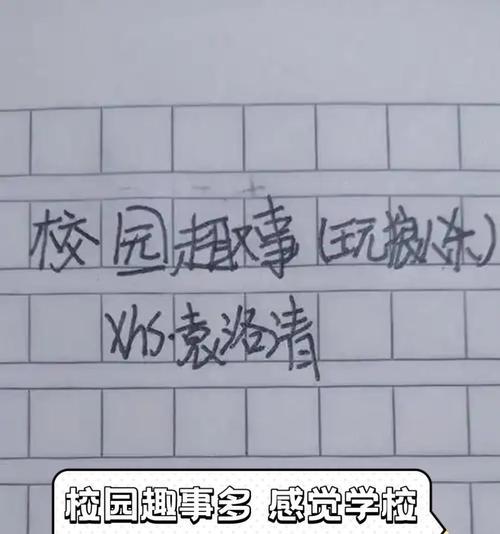 校园趣事(玩狼人杀)
xhs.袁洛清
校园趣事多 感觉学校